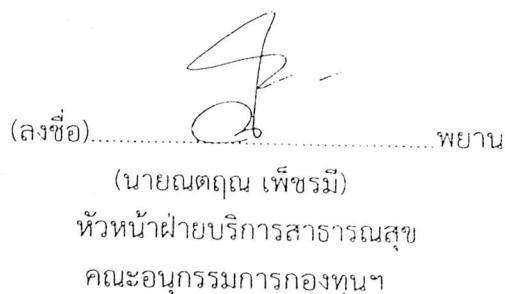 (ลงชื่อ)............................................พยาน
(นายณตฤณ เพ็ชรมี)
หัวหน้าฝ่ายบริการสาธารณสุข
คณะอนุกรรมการกองทุนฯ